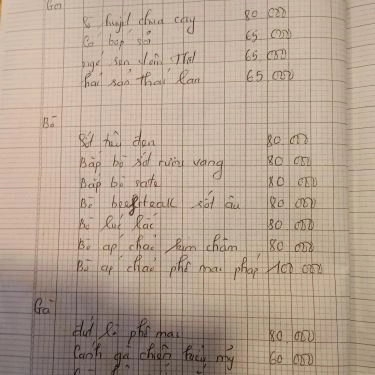 Gỏi
chua cay 80 000
Cá bóp 65 000
ngó sen tôm thịt 65 000
hải sản thái lan 65 000
Bò
Sốt tiêu đen 80 000
Bắp bò sốt rượu vang 80 000
Bắp bò sate 80 000
Bò beefsteak sốt âu 80 000
Bò lúc lắc 80 000
Bò áp chảo chấm 80 000
Bò áp chảo phô mai pháp 100 000
Gà
đút lò phô mai 80 000
Cánh gà chiên kiểu mỹ 60 000